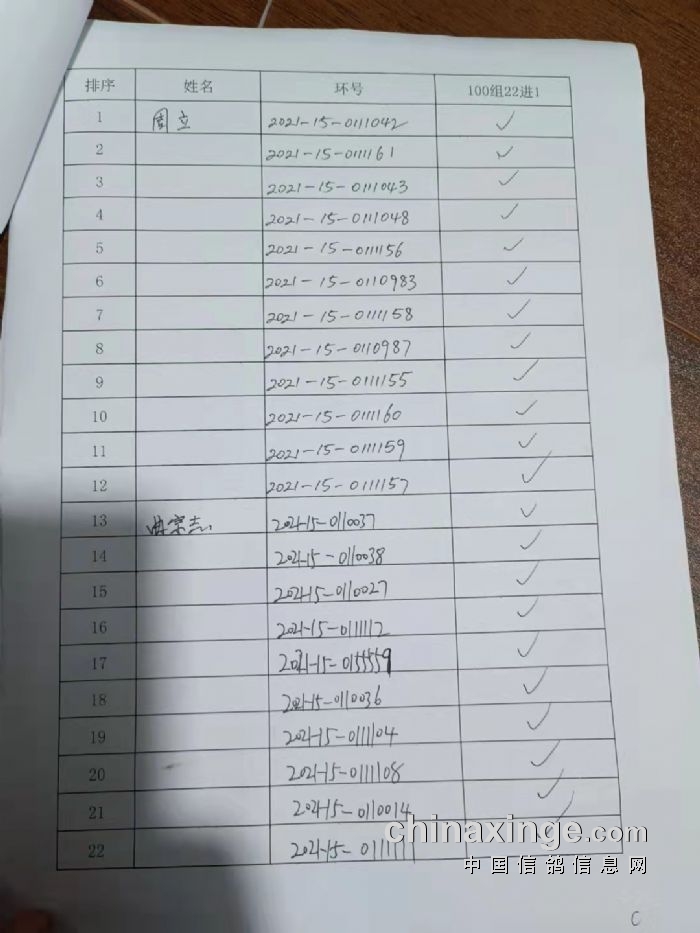 排序 姓名 环号 100组22进1
1 周立 2021-15-0111042 ✓
2 2021-15-0111161 ✓
3 2021-15-0111043 ✓
4 2021-15-0111048 ✓
5 2021-15-0111156 ✓
6 2021-15-0110983 ✓
7 2021-15-0111158 ✓
8 2021-15-0110987 ✓
9 2021-15-0111155 ✓
10 2021-15-0111160 ✓
11 2021-15-0111159 ✓
12 2021-15-0111157 ✓
13 曲宗志 2021-15-0110037 ✓
14 2021-15-0110038 ✓
15 2021-15-0110027 ✓
16 2021-15-0111112 ✓
17 2021-15-0155559 ✓
18 2021-15-0110036 ✓
19 2021-15-0111104 ✓
20 2021-15-0111108 ✓
21 2021-15-0110014 ✓
22 2021-15-0111111 ✓
chinaxinge.com
中国信鸽信息网